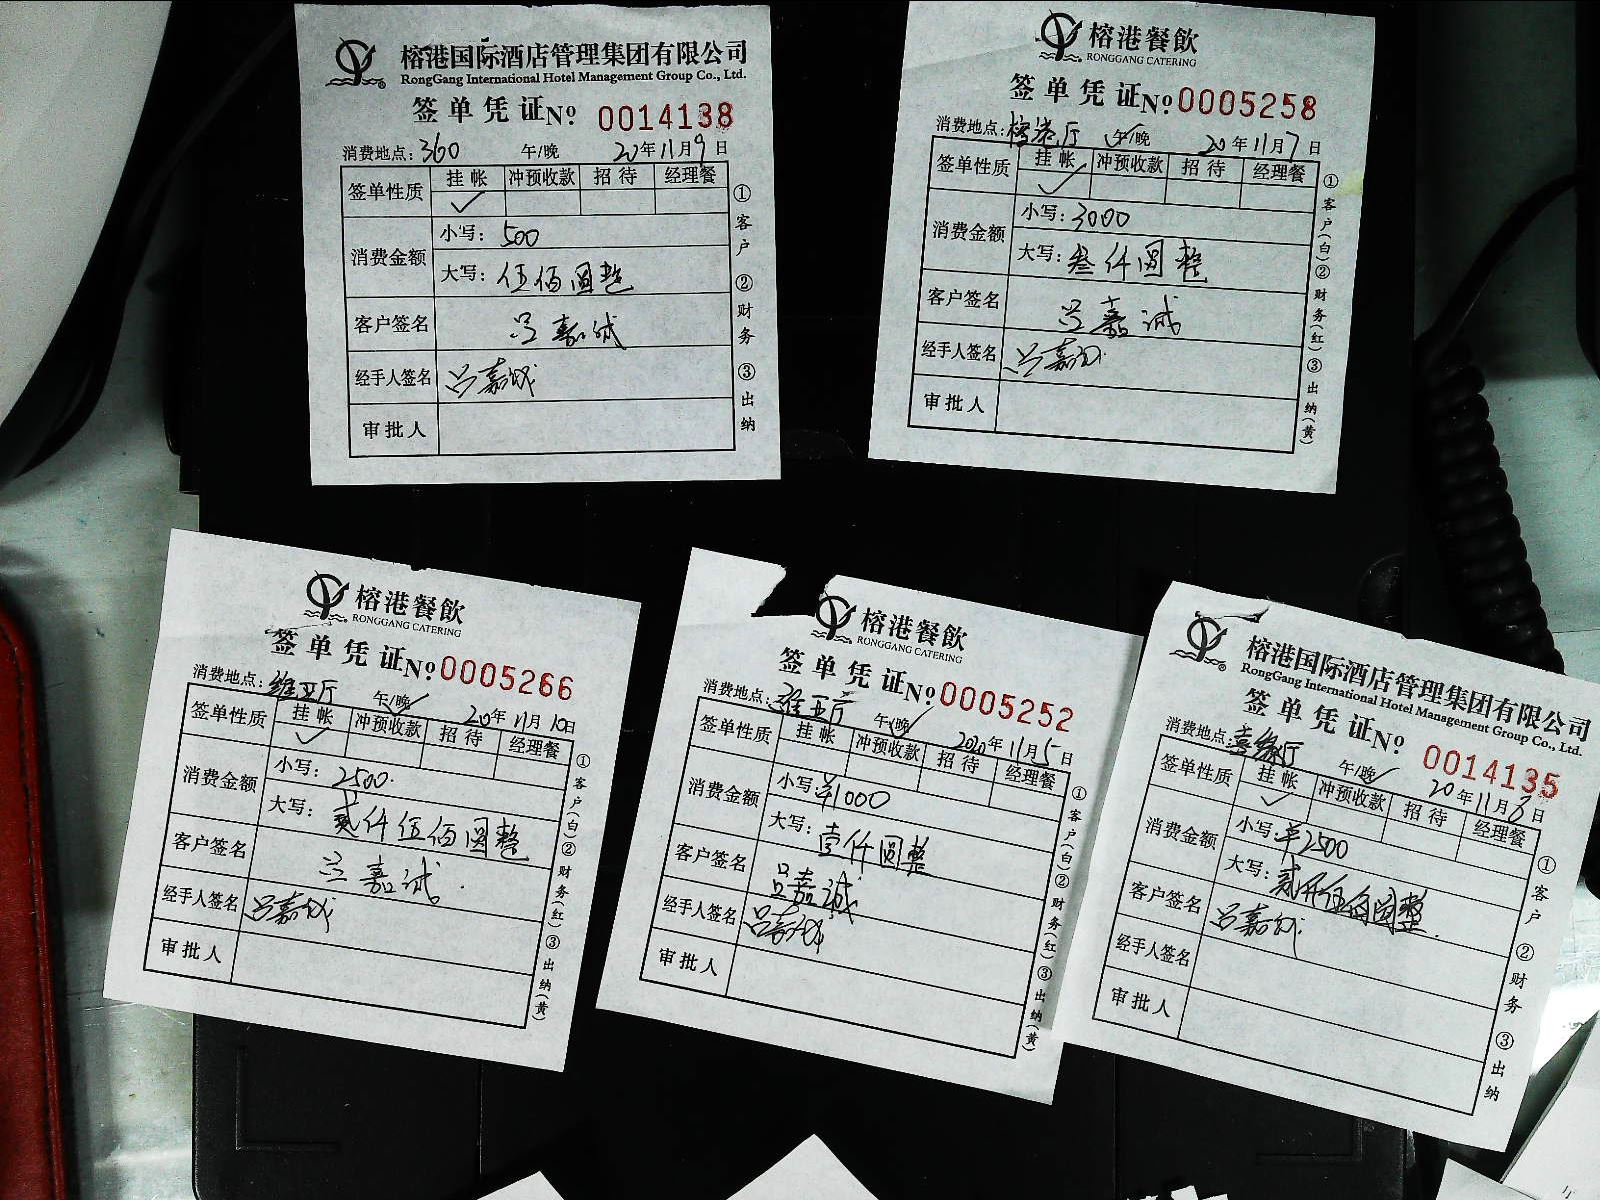 榕港国际酒店管理集团有限公司
RongGang International Hotel Management Group Co., Ltd.
签单凭证No 0014138
消费地点:360 午/晚 20年11月9日
签单性质 挂帐 冲预收款 招待 经理餐
✓
消费金额 小写:500
大写:伍佰圆整
客户签名 吕嘉诚
经手人签名 吕嘉诚
审批人
①客户 ②财务 ③出纳
榕港餐飲
RONGGANG CATERING
签单凭证No 0005258
消费地点:榕港厅 午/晚 20年11月7日
签单性质 挂帐 冲预收款 招待 经理餐
✓
消费金额 小写:3000
大写:叁仟圆整
客户签名 吕嘉诚
经手人签名 吕嘉诚
审批人
①客户(白)②财务(红)③出纳(黄)
榕港餐飲
RONGGANG CATERING
签单凭证No 0005266
消费地点:维亚厅 午/晚✓ 20年11月10日
签单性质 挂帐 冲预收款 招待 经理餐
✓
消费金额 小写:2500
大写:贰仟伍佰圆整
客户签名 吕嘉诚
经手人签名 吕嘉诚
审批人
①客户(白)②财务(红)③出纳(黄)
榕港餐飲
RONGGANG CATERING
签单凭证No 0005252
消费地点:维亚厅 午/晚✓ 2020年11月5日
签单性质 挂帐 冲预收款 招待 经理餐
消费金额 小写:¥1000
大写:壹仟圆整
客户签名 吕嘉诚
经手人签名 吕嘉诚
审批人
①客户(白)②财务(红)③出纳(黄)
榕港国际酒店管理集团有限公司
RongGang International Hotel Management Group Co., Ltd.
签单凭证No 0014135
消费地点:喜缘厅 午/晚✓ 20年11月8日
签单性质 挂帐 冲预收款 招待 经理餐
✓
消费金额 小写:¥2500
大写:贰仟伍佰圆整
客户签名 吕嘉诚
经手人签名
审批人
①客户 ②财务 ③出纳